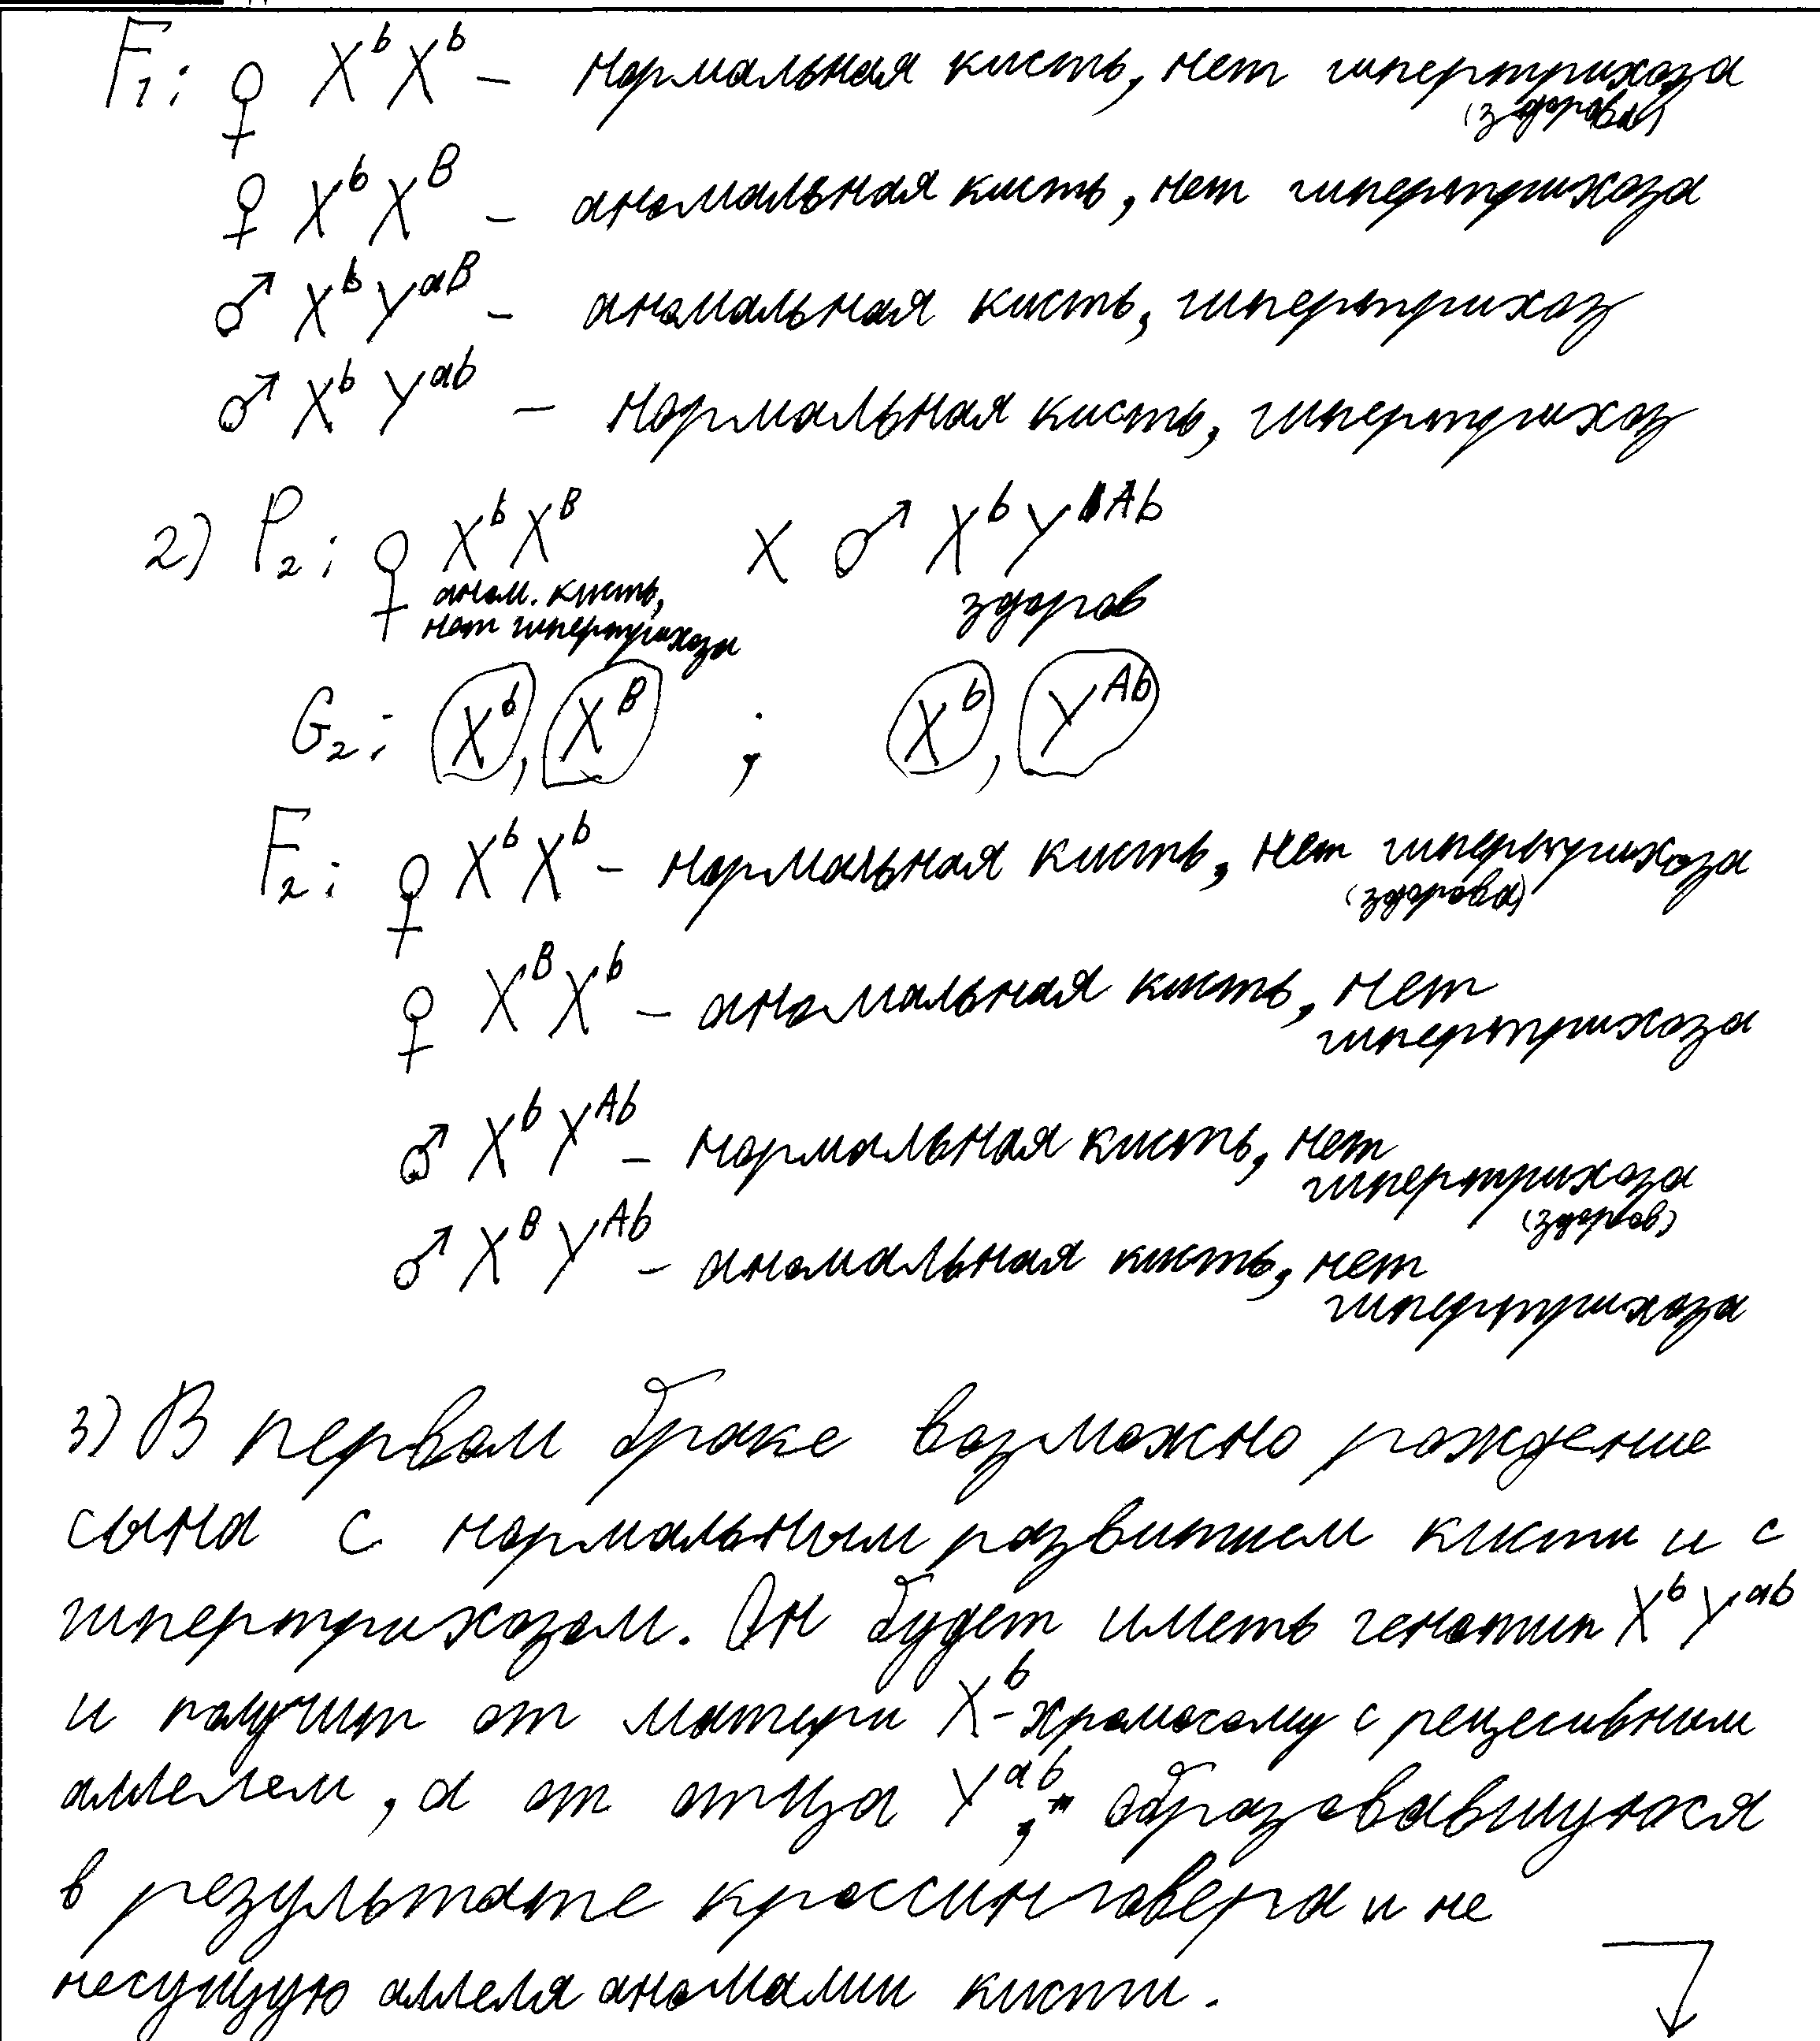 F₁: ♀ XᵇXᵇ – нормальная кисть, нет гипертрихоза
(здорова)
♀ XᵇXᴮ – аномальная кисть, нет гипертрихоза
♂ XᵇYᵃᴮ – аномальная кисть, гипертрихоз
♂ XᵇYᵃᵇ – нормальная кисть, гипертрихоз
2) P₂: ♀ XᵇXᴮ X ♂ XᵇYᴬᵇ
аном. кисть, здоров
нет гипертрихоза
G₂: Xᵇ, Xᴮ ; Xᵇ, Yᴬᵇ
F₂: ♀ XᵇXᵇ – нормальная кисть, нет гипертрихоза
(здорова)
♀ XᴮXᵇ – аномальная кисть, нет
гипертрихоза
♂ XᵇYᴬᵇ – нормальная кисть, нет
гипертрихоза
(здоров)
♂ XᴮYᴬᵇ – аномальная кисть, нет
гипертрихоза
3) В первом браке возможно рождение
сына с нормальным развитием кисти и с
гипертрихозом. Он будет иметь генотип XᵇYᵃᵇ
и получит от матери Xᵇ-хромосому с рецесивным
аллелем, а от отца Yᵃᵇ, образовавшуюся
в результате кроссинговера и не
несущую аллеля аномалии кисти.